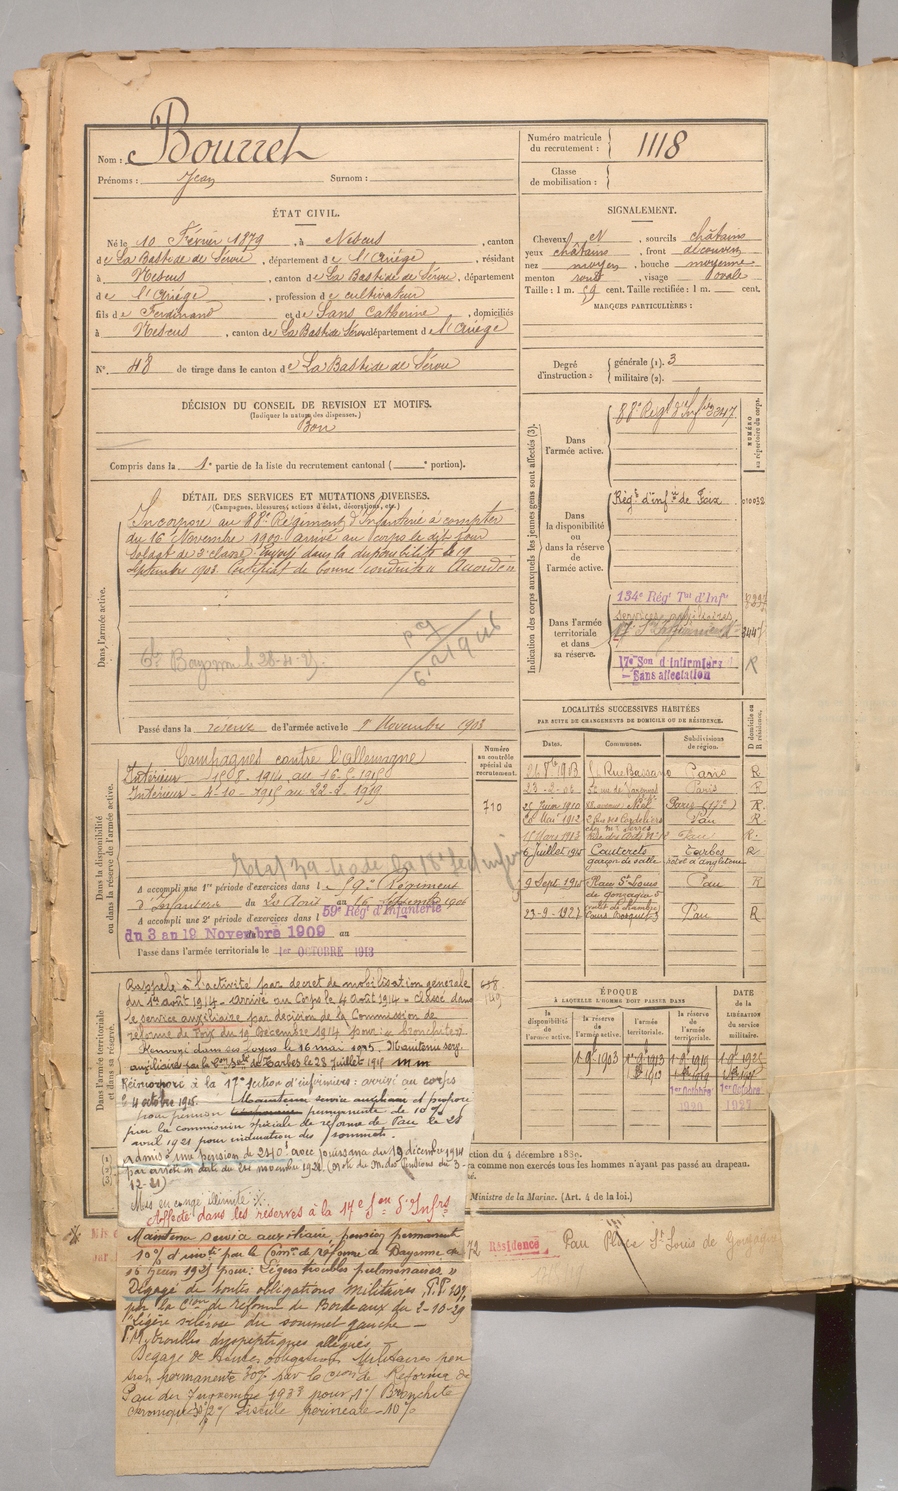 Nom : Bourret
Prénoms : Jean Surnom :
Numéro matricule du recrutement : 1118
Classe de mobilisation :
ÉTAT CIVIL.
Né le 10 Février 1879, à Nescus, canton
de La Bastide de Sérou, département de l'Ariège, résidant
à Nescus, canton de La Bastide de Sérou, département
de l'Ariège, profession de cultivateur
fils de Ferdinand et de Sans Catherine, domiciliés
à Nescus, canton de La Bastide Sérou département de l'Ariège
N° 48 de tirage dans le canton de La Bastide de Sérou
SIGNALEMENT.
Cheveux N, sourcils châtains
yeux châtains, front découvert
nez moyen, bouche moyenne
menton rond, visage ovale
Taille : 1 m. 59 cent. Taille rectifiée : 1 m. cent.
MARQUES PARTICULIÈRES :
Degré d'instruction : générale (1). 3
militaire (2).
DÉCISION DU CONSEIL DE REVISION ET MOTIFS.
(Indiquer la nature des dispenses.)
Bon
Compris dans la 1e partie de la liste du recrutement cantonal ( e portion).
DÉTAIL DES SERVICES ET MUTATIONS DIVERSES.
(Campagnes, blessures, actions d'éclat, décorations, etc.)
Dans l'armée active.
Incorporé au 88e Régiment d'Infanterie à compter
du 16 Novembre 1900 arrivé au corps le dit jour
soldat de 2e classe. Envoyé dans la disponibilité le 19
Septembre 1903. Certificat de bonne conduite « Accordé »
Bayonne le 28-4-25
Passé dans la réserve de l'armée active le 1er Novembre 1903
Indication des corps auxquels les jeunes gens sont affectés (3).
NUMÉRO au répertoire du corps.
Dans l'armée active.
88e Régt d'Infie 3247
Dans la disponibilité ou dans la réserve de l'armée active.
Régt d'infie de Foix 010032
Dans l'armée territoriale et dans sa réserve.
134e Rég' Ter d'Infie
services auxiliaires
17e Son d'Infirmiers
Sans affectation
R
LOCALITÉS SUCCESSIVES HABITÉES
PAR SUITE DE CHANGEMENTS DE DOMICILE OU DE RÉSIDENCE.
Dates. Communes. Subdivisions de région. D domicile ou R résidence.
24 8bre 1903 Rue Bassano Paris R
Paris R
25 Juin 1910 avenue Niel Paris (17e) R.
26 Mai 1912 2 rue des Cordeliers Pau R
11 Mars 1913 Pau R.
6 Juillet 1915 Cauterets Tarbes R
garçon de salle hôtel d'angleterre
9 Sept 1915 Place St Louis de gonzague 5 Pau R
23-9-1927 Cours Bosquet 3 Pau R
Dans la disponibilité ou dans la réserve de l'armée active.
Numéro au contrôle spécial du recrutement.
Campagnes contre l'allemagne
Intérieur 1914 au 16-5-1915
Intérieur 4-10-1915 au 22-2-1919
710
A accompli une 1re période d'exercices dans l e 59e Régiment
d'Infanterie du 20 Août au 16 Septembre 1906
A accompli une 2e période d'exercices dans l 59e Rég' d'Infanterie
du 3 au 19 Novembre 1909 au
Passé dans l'armée territoriale le 1er OCTOBRE 1913
Dans l'armée territoriale et dans sa réserve.
Rappelé à l'activité par décret de mobilisation générale
du 1er août 1914 - Arrivé au Corps le 4 Août 1914 - Classé dans
le service auxiliaire par décision de la Commission de
réforme de Foix du 19 Décembre 1914 pour : « bronchite »
Renvoyé dans ses foyers le 16 mai 1915. Maintenu serv.
auxiliaire par la Con Spéle de Tarbes le 28 Juillet 1915
ÉPOQUE
À LAQUELLE L'HOMME DOIT PASSER DANS
DATE de la LIBÉRATION du service militaire.
la disponibilité de l'armée active. la réserve de l'armée active. l'armée territoriale. la réserve de l'armée territoriale.
1er 9bre 1903
1er Octobre 1920
1er Octobre 1927
Réincorporé à la 17e Section d'infirmiers : arrivé au corps
le 4 octobre 1915. Maintenu service auxiliaire et proposé
pour pension permanente de 10 %
par la commission spéciale de réforme de Pau le 28
avril 1921 pour induration des sommets.
Admis à une pension de 240 f avec jouissance du 19 décembre 1914
par arrêté en date du novembre 1921. (avis de M. des Pensions du 3-
12-21)
Mis en congé illimité :
Affecté dans les réserves à la 17e Son d'Infrs
ction du 4 décembre 1889.
ra comme non exercés tous les hommes n'ayant pas passé au drapeau.
Ministre de la Marine. (Art. 4 de la loi.)
72 Résidence Pau Place St Louis de Gonzague
Maintenu service auxiliaire pension permanente
10% d'invté par la Comon de réforme de Bayonne du
16 juin 1925 pour : « Légers troubles pulmonaires »
Dégagé de toutes obligations militaires P.P. 10%
par la Cion de réforme de Bordeaux du 2-10-29
1° légère sclérose du sommet gauche —
troubles dyspeptiques allégués
Dégagé de toutes obligations Militaires pen
sion permanente 30% par la Cion de Réforme de
Pau du 7 novembre 1933 pour 1°/ Bronchite
chronique 2°/ Fistule périnéale - 10%